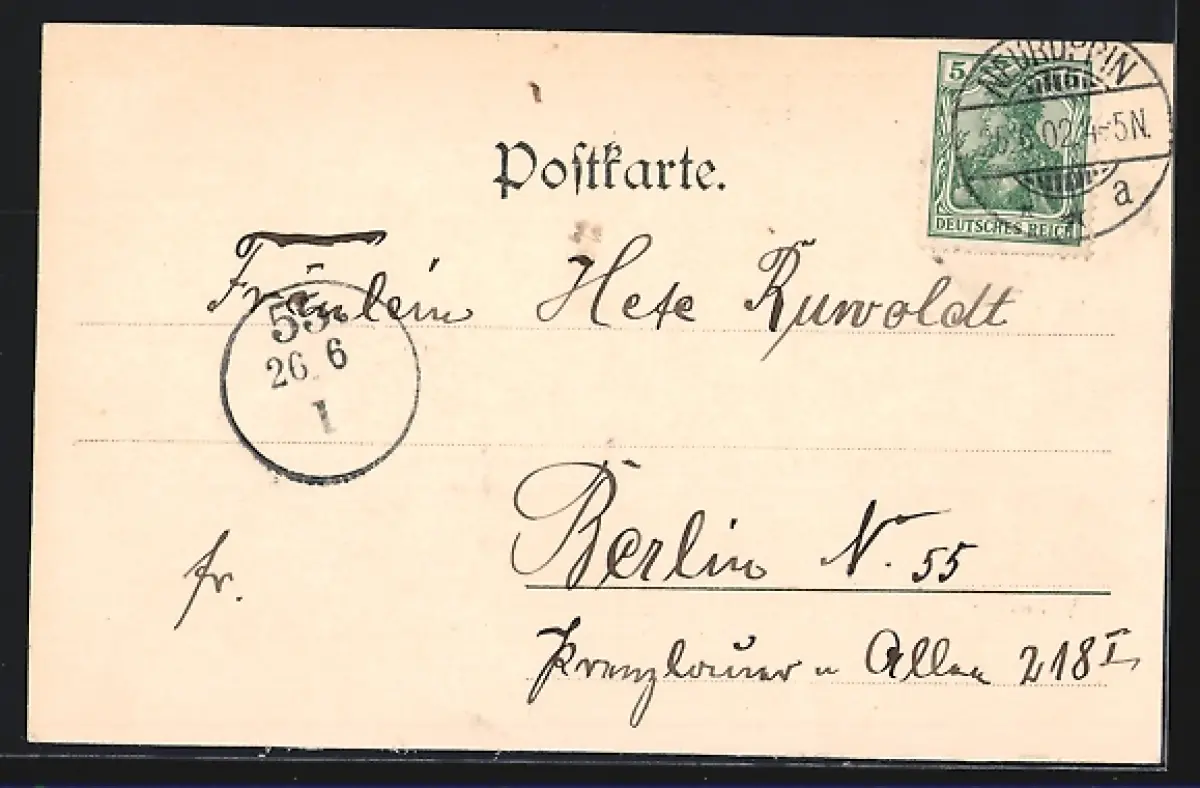 Postkarte.
5
DEUTSCHES REICH
NEURUPPIN
26.6.02. 4-5N.
a
Fräulein Hete Ruwoldt
55.
26. 6
1
Berlin N. 55
fr.
Prenzlauer Allee 218 I